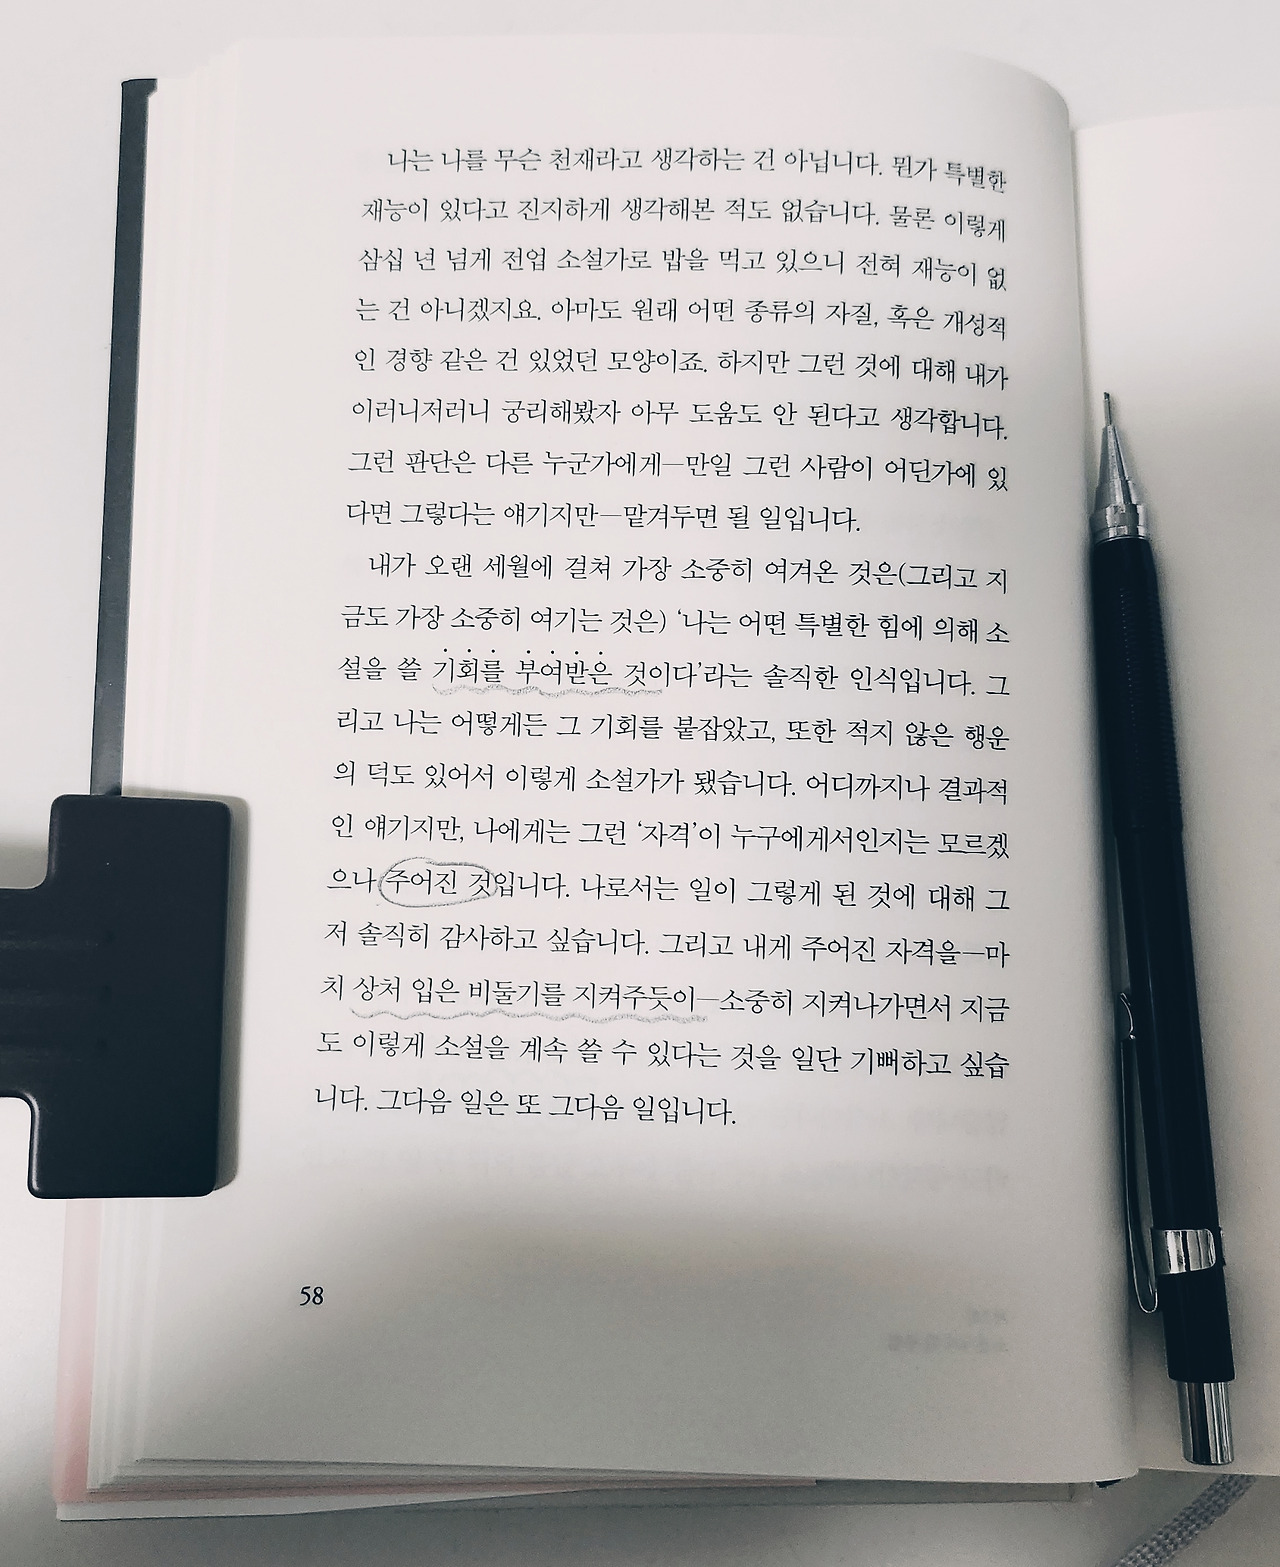 나는 나를 무슨 천재라고 생각하는 건 아닙니다. 뭔가 특별한
재능이 있다고 진지하게 생각해본 적도 없습니다. 물론 이렇게
삼십 년 넘게 전업 소설가로 밥을 먹고 있으니 전혀 재능이 없
는 건 아니겠지요. 아마도 원래 어떤 종류의 자질, 혹은 개성적
인 경향 같은 건 있었던 모양이죠. 하지만 그런 것에 대해 내가
이러니저러니 궁리해봤자 아무 도움도 안 된다고 생각합니다.
그런 판단은 다른 누군가에게—만일 그런 사람이 어딘가에 있
다면 그렇다는 얘기지만—맡겨두면 될 일입니다.
내가 오랜 세월에 걸쳐 가장 소중히 여겨온 것은(그리고 지
금도 가장 소중히 여기는 것은) ‘나는 어떤 특별한 힘에 의해 소
설을 쓸 기회를 부여받은 것이다’라는 솔직한 인식입니다. 그
리고 나는 어떻게든 그 기회를 붙잡았고, 또한 적지 않은 행운
의 덕도 있어서 이렇게 소설가가 됐습니다. 어디까지나 결과적
인 얘기지만, 나에게는 그런 ‘자격’이 누구에게서인지는 모르겠
으나 주어진 것입니다. 나로서는 일이 그렇게 된 것에 대해 그
저 솔직히 감사하고 싶습니다. 그리고 내게 주어진 자격을—마
치 상처 입은 비둘기를 지켜주듯이—소중히 지켜나가면서 지금
도 이렇게 소설을 계속 쓸 수 있다는 것을 일단 기뻐하고 싶습
니다. 그다음 일은 또 그다음 일입니다.
58